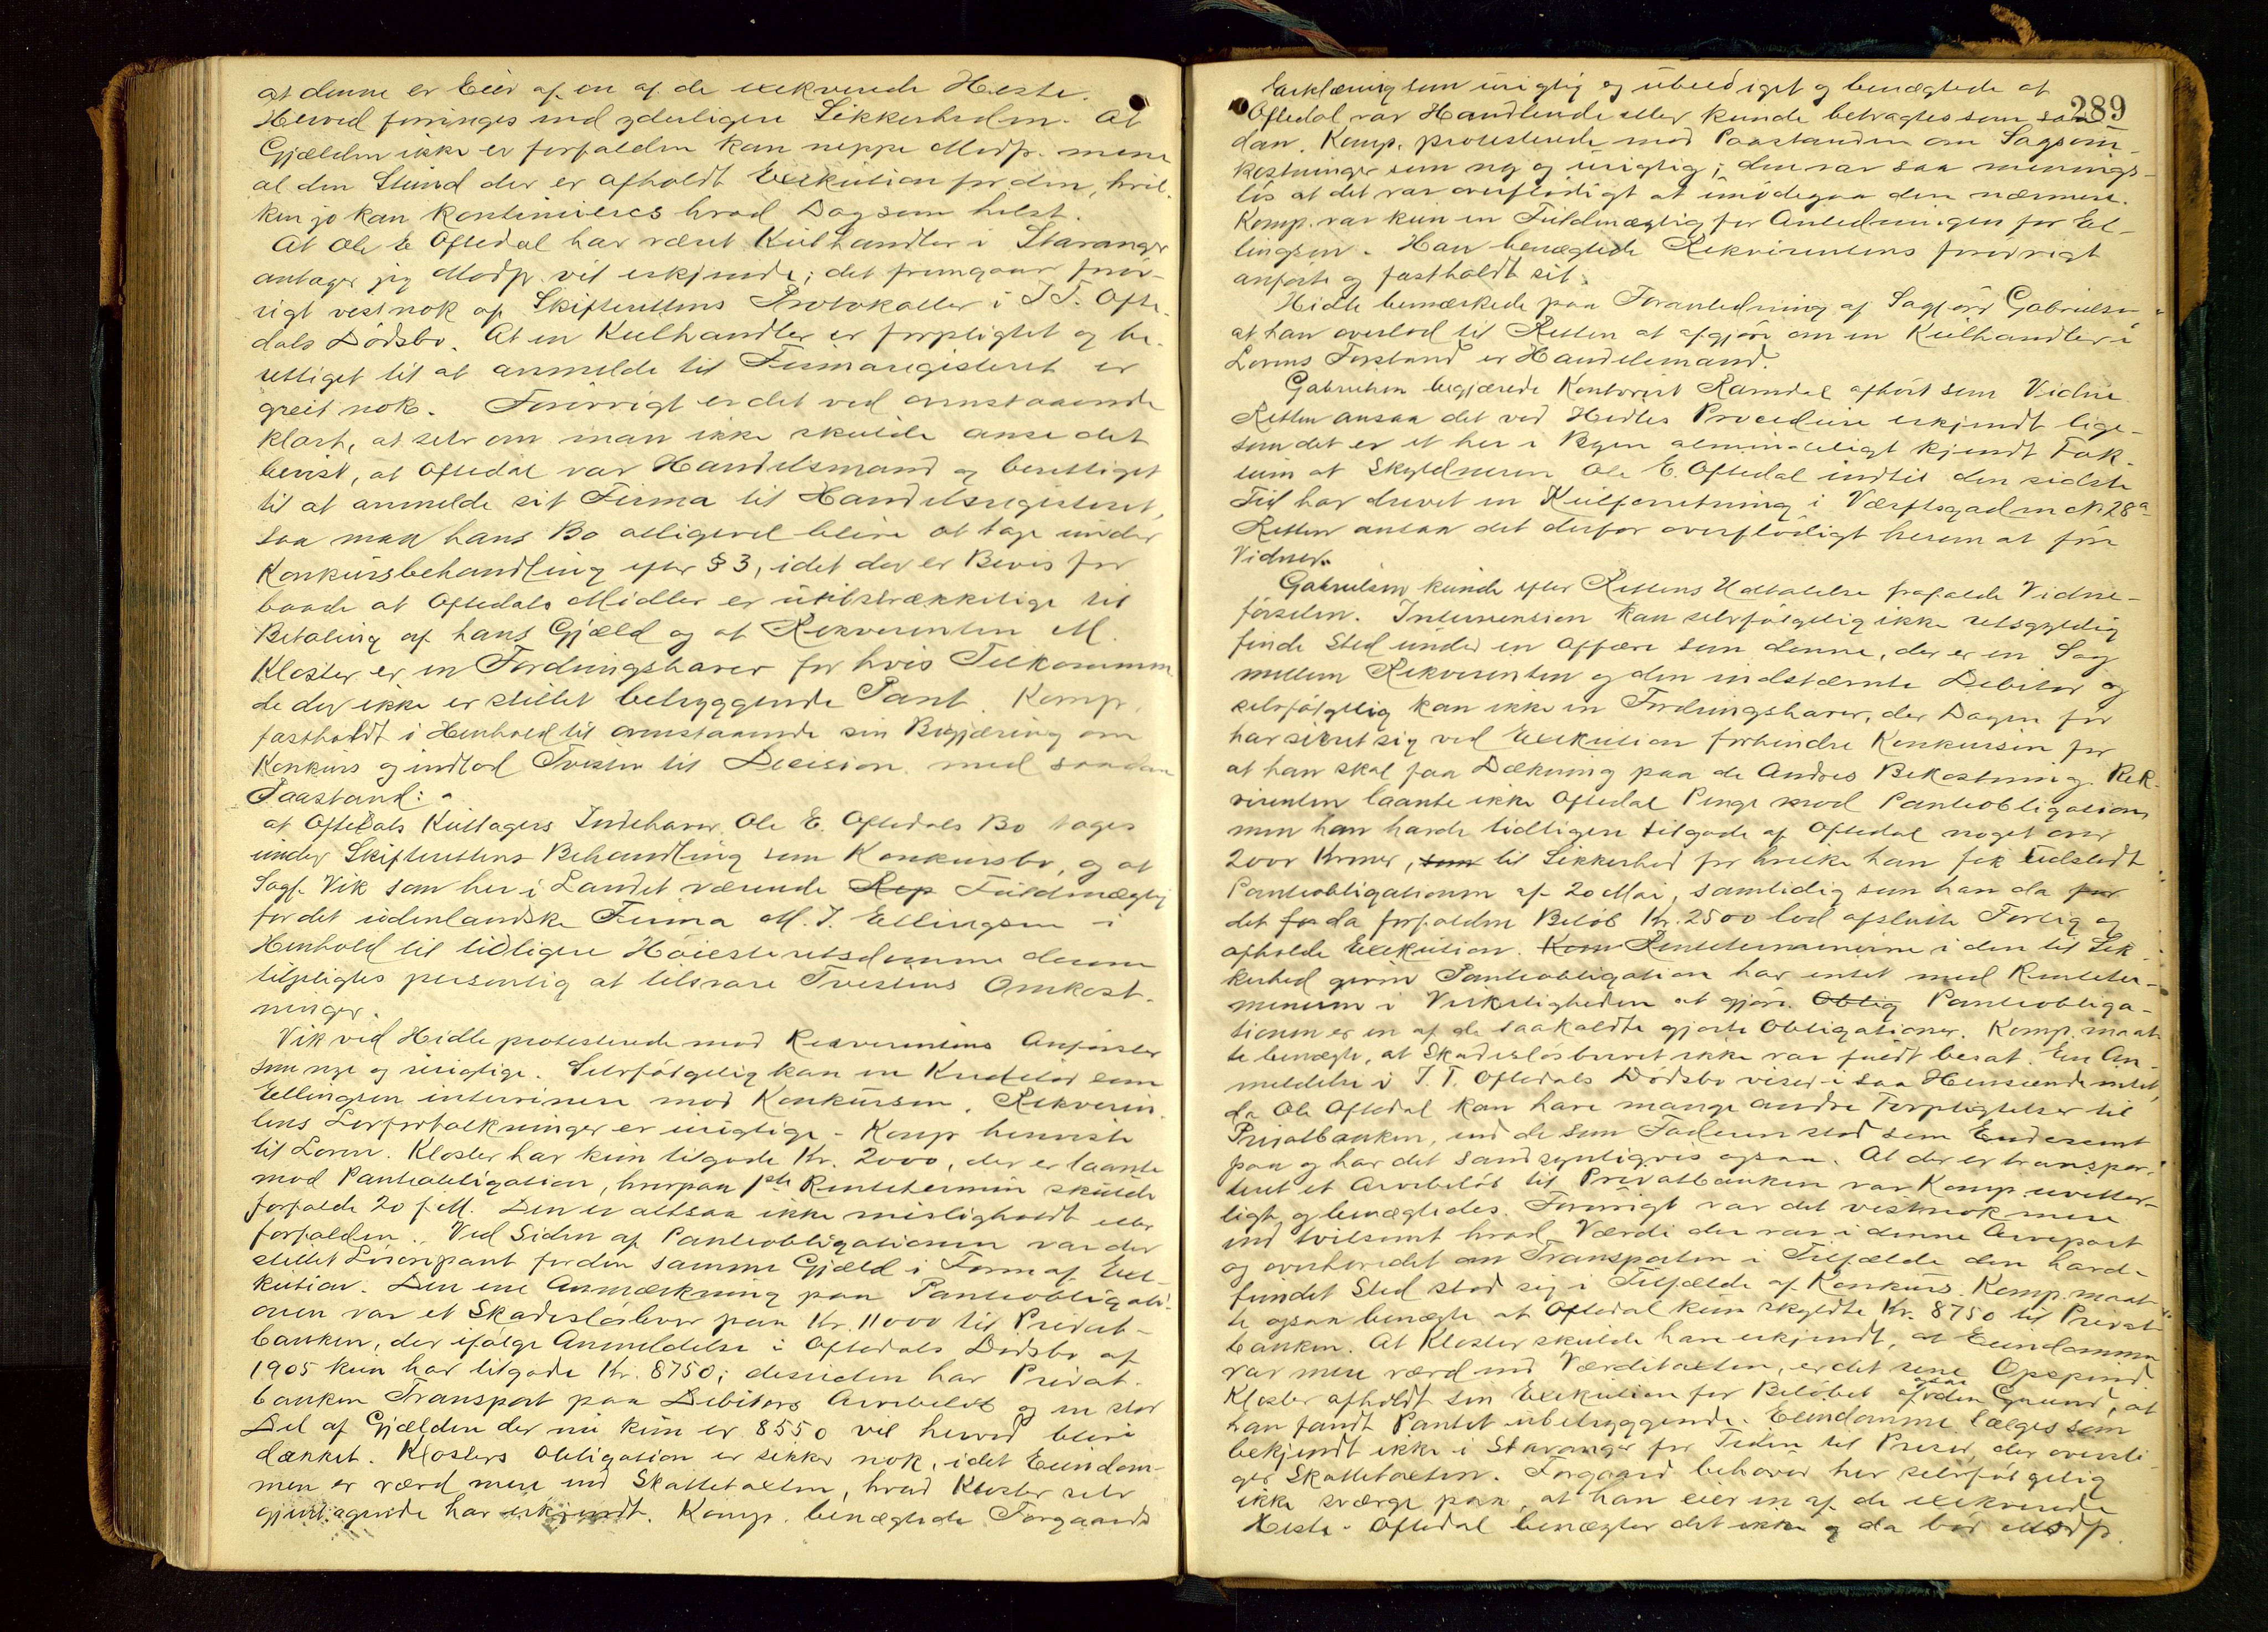 at denne er Eier af en af de exekverede Heste.
Herved forringes end yderligere Sikkerheden. At
Gjælden ikke er forfalden kan neppe Modp. mene
al den Stund der er afholdt Exekution for den, hvil-
ken jo kan kontinueres hvad Dag som helst.
At Ole E Oftedal har været Kulhandler i Stavanger
antager jeg Modp. vil erkjende; det fremgaar forøv-
rigt vestnok af Skifterettens Protokoller i J.T. Ofte-
dals Dødsbo. At en Kulhandler er forpligtet og be-
rettiget til at anmelde til Firmaregisteret er
greit nok. Forøvrigt er det ved ovenstaaende
klart, at selv om man ikke skulde anse det
bevist, at Oftedal var Handelsmand og berettiget
til at anmelde sit Firma til Handelsregisteret,
saa maa hans Bo alligevel blive at tage under
Konkursbehandling efter § 3, idet der er Bevis for
baade at Oftedals Midler er utilstrækkelige til
Betaling af hans Gjæld og at Rekvirenten M.
Kloster er en Fordringshaver for hvis Tilkommen-
de der ikke er stillet betryggende Pant. Komp.
fastholdt i Henhold til ovenstaaende sin Begjæring om
Konkurs og indlod Tvisten til Decision med saadan
Paastand:
at Oftedals Kullagers Indehaver Ole E. Oftedals Bo tages
under Skifterettens Behandling som Konkursbo, og at
Sagf. Vik som her i Landet værende Rep Fuldmægtig
for det udenlandske Firma M. J. Ellingsen i
Henhold til tidligere Høiesteretsdomme denne
tilpligtes personlig at tilsvare Tvistens Omkost-
ninger.
Vik ved Hidle protesterede mod Rekvirentens Anførsler
som nye og urigtige. Selvfølgelig kan en Kreditor som
Ellingsen intervinere mod Konkursen. Rekviren-
tens Lovfortolkninger er urigtige - Komp henviste
til Loven. Kloster har kun tilgode Kr. 2000, der er laante
mod Panteobligation, hvorpaa 1ste Rentetermin skulde
forfalde 20 f. M. Den er altsaa ikke misligholdt eller
forfalden. Ved Siden af Panteobligationen var der
stillet Løsørepant for den samme Gjæld i Form af Exe-
kution. Den ene Anmærkning paa Panteobligati-
onen var et Skadesløsbrev paa Kr. 11000 til Privat-
banken, der ifølge Anmeldelse i Oftedals Dødsbo af
1905 kun har tilgode Kr. 8750; desuden har Privat-
banken Transport paa Debitors Arvebeløb og en stor
Del af Gjælden der nu kun er 8550 vil herved blive
dækket. Klosters Obligation er sikker nok, idet Eiendom-
men er værd mere end Skattetaxten, hvad Kloster selv
gjentagende har erkjendt. Komp. benægtede Torgaards
289
Erklæring som urigtig og ubeediget og benægtede at
Oftedal var Handlende eller kunde betragtes som saa-
dan. Komp. protesterede mod Paastanden om Sagsom-
kostninger som ny og urigtig; den var saa menings-
løs at det var overflødigt at imødegaa den nærmere.
Komp. var kun en Fuldmægtig for Anledningen for El-
lingsen. Han benægtede Rekvirentens forøvrigt
anførte og fastholdt sit.
Hidle bemærkede paa Foranledning af Sagfører Gabrielsen
at han overlod til Retten at afgjøre om en Kulhandler i
Lovens Forstand er Handelsmand.
Gabrielsen begjærede Kontorist Ramdal afhørt som Vidne
Retten ansaa det ved Hidles Procedure erkjendt lige-
som det er et her i Byen almindeligt kjendt Fak-
tum at Skyldneren Ole E. Oftedal indtil den sidste
Tid har drevet en Kulforretning i Værftsgaden No 28a
Retten ansaa det derfor overflødigt herom at føre
Vidner.
Gabrielsen kunde efter Rettens Udtalelse frafalde Vidne-
førselen. Intervension kan selvfølgelig ikke retsgyldig
finde Sted under en Affære som denne, der er en Sag
mellem Rekvirenten og den indstævnte Debitor og
selvfølgelig kan ikke en Fordringshaver, der Dagen før
har sikret sig ved Exekution forhindre Konkursen for
at han skal faa Dækning paa de Andres Bekostning. Rek-
virenten laante ikke Oftedal Penge mod Panteobligation
men han havde tidligere tilgode af Oftedal noget over
2000 Kroner, som til Sikkerhed for hvilke han fik udstedt
Panteobligationen af 20 Mai, samtidig som han da for
det for da forfaldne Beløb Kr. 2500 lod afslutte Forlig og
afholde Exekution. Kom Renteterminerne i den til Sik-
kerhed givne Panteobligation har intet med Renteter-
minerne i Virkeligheden at gjøre. Oblig Panteobliga-
tionen er en af de saakaldte gjorte Obligationer. Komp. maat-
te benægte, at Skadesløsbrevet ikke var fuldt besat. En An-
meldelse i J. T. Oftedals Dødsbo viser i saa Henseende intet,
da Ole Oftedal kan have mange andre Forpligtelser til
Privatbanken, end de som Faderen stod som Endosent
paa og har det sandsynligvis ogsaa. At der er transpor-
teret et Arvebeløb til Privatbanken var Komp uvitter-
ligt og benægtedes. Forøvrigt var det vistnok mere
end tvilsomt hvad Værdi der var i denne Arvepart
og overhovedet om Transporten i Tilfælde den havde
fundet Sted stod sig i Tilfælde af Konkurs. Komp. maat-
te ogsaa benægte at Oftedal kun skyldte Kr. 8750 til Privat
banken. At Kloster skulde have erkjendt, at Eiendommen
var mere værd end Værditaxten, er det rene Opspind.
Kloster afholdt sin Exekution for Beløbet ogsaa af den Grund, at
han fandt Pantet ubetryggende. Eiendomme sælges som
bekjendt ikke i Stavanger for Tiden til Priser, der oversti-
ger Skattetaxten. Torgaard behøver her selvfølgelig
ikke sværge paa, at han eier en af de exekverede
Heste. Oftedal benægter det ikke og da bør Modp.